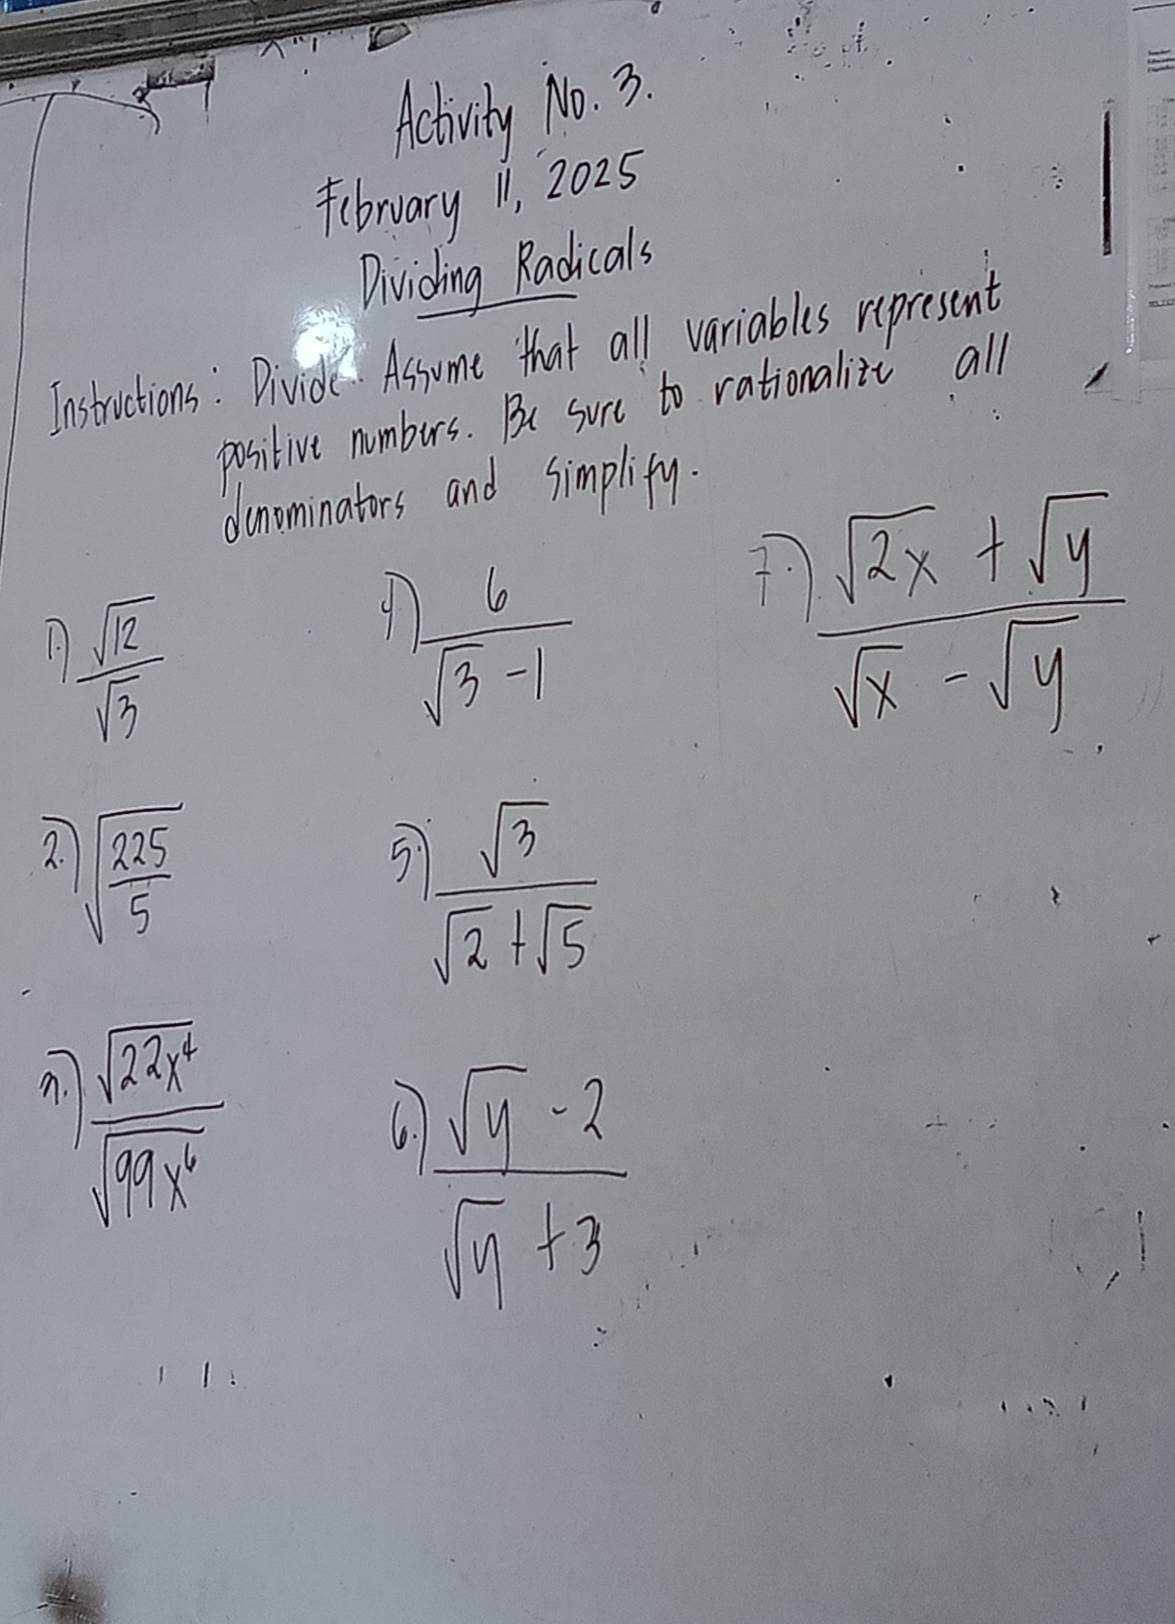 Activity No. 3.
February 11, 2025
Dividing Radicals
Instructions: Divide. Assume that all variables represent
positive numbers. Be sure to rationalize all
denominators and simplify.
1.) √12 / √3
2.) √(225 / 5)
3.) √22x⁴ / √99x⁶
4.) 6 / √3 - 1
5.) √3 / √2 + √5
6.) √y - 2 / √y + 3
7.) √2x + √y / √x - √y